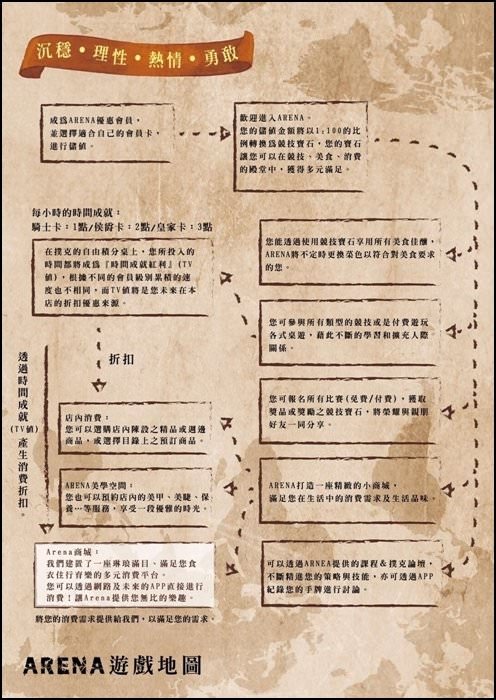 沉穩•理性•熱情•勇敢
成為ARENA優惠會員,
並選擇適合自己的會員卡,
進行儲值。
歡迎進入ARENA。
您的儲值金額將以1:100的比
例轉換為競技寶石,您的寶石
讓您可以在競技、美食、消費
的殿堂中,獲得多元滿足。
每小時的時間成就:
騎士卡:1點/侯爵卡:2點/皇家卡:3點
在撲克的自由積分桌上,您所投入的
時間都將成為『時間成就紅利』(TV
值),根據不同的會員級別累積的速
度也不相同,而TV值將是您未來在本
店的折扣優惠來源。
您能透過使用競技寶石享用所有美食佳釀,
ARENA將不定時更換菜色以符合對美食要求
的您。
您可參與所有類型的競技或是付費遊玩
各式桌遊,藉此不斷的學習和擴充人際
關係。
折扣
透過時間成就(TV值)產生消費折扣。
您可報名所有比賽(免費/付費),獲取
獎品或獎勵之競技寶石,將榮耀與親朋
好友一同分享。
店內消費:
您可以選購店內陳設之精品或週邊
商品,或選擇目錄上之預訂商品。
ARENA美學空間:
您也可以預約店內的美甲、美睫、保
養…等服務,享受一段優雅的時光。
ARENA打造一座精緻的小商城,
滿足您在生活中的消費需求及生活品味。
Arena商城:
我們建置了一座琳琅滿目、滿足您食
衣住行育樂的多元消費平台。
您可以透過網路及未來的APP直接進行
消費!讓Arena提供您無比的樂趣。
可以透過ARNEA提供的課程&撲克論壇,
不斷精進您的策略與技能,亦可透過APP
紀錄您的手牌進行討論。
將您的消費需求提供給我們,以滿足您的需求。
ARENA遊戲地圖